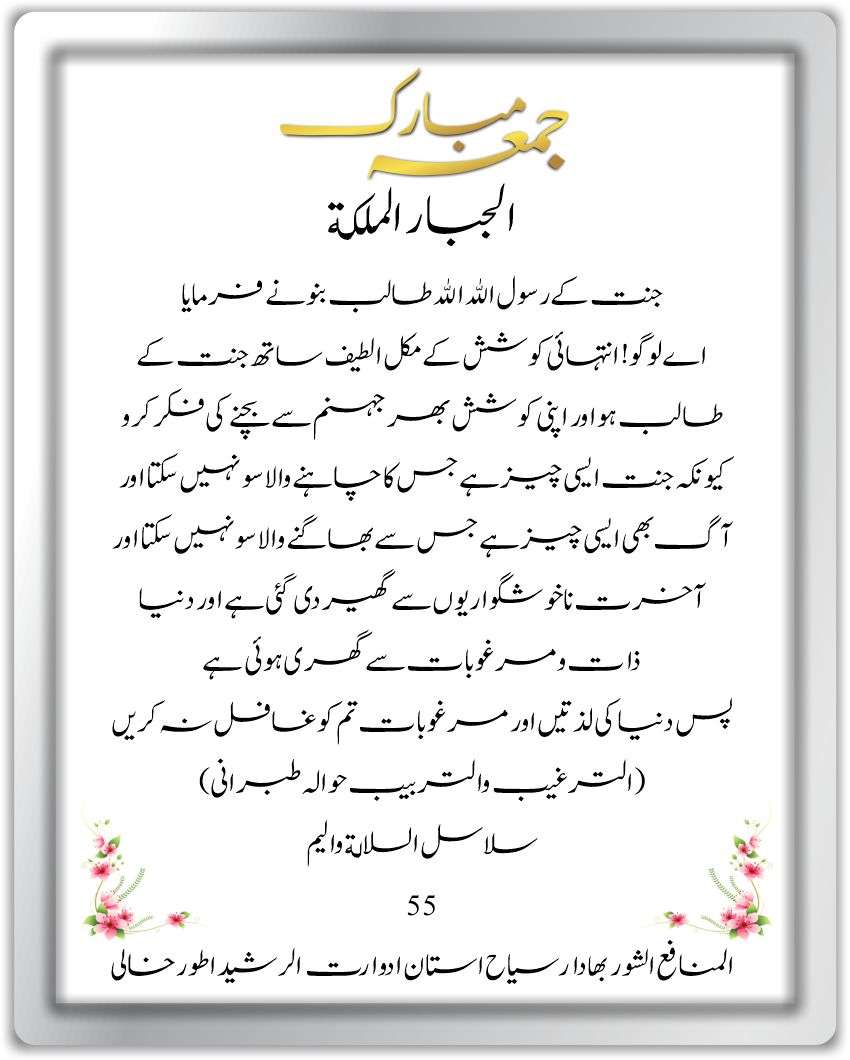 جمعہ مبارک
الجبار الملکۃ
جنت کے رسول اللہ اللہ طالب بنو نے فرمایا
اے لوگو! انتہائی کوشش کے مکل الطیف ساتھ جنت کے
طالب ہو اور اپنی کوشش بھر جہنم سے بچنے کی فکر کرو
کیونکہ جنت ایسی چیز ہے جس کا چاہنے والا سو نہیں سکتا اور
آگ بھی ایسی چیز ہے جس سے بھاگنے والا سو نہیں سکتا اور
آخرت ناخوشگواریوں سے گھیر دی گئی ہے اور دنیا
ذات و مرغوبات سے گھری ہوئی ہے
پس دنیا کی لذتیں اور مرغوبات تم کو غافل نہ کریں
(الترغیب والتربیب حوالہ طبرانی)
سلاسل السلاۃ والیم
55
المنافع الشور بھادار سیاح استان ادوارت الرشید اطور حالی